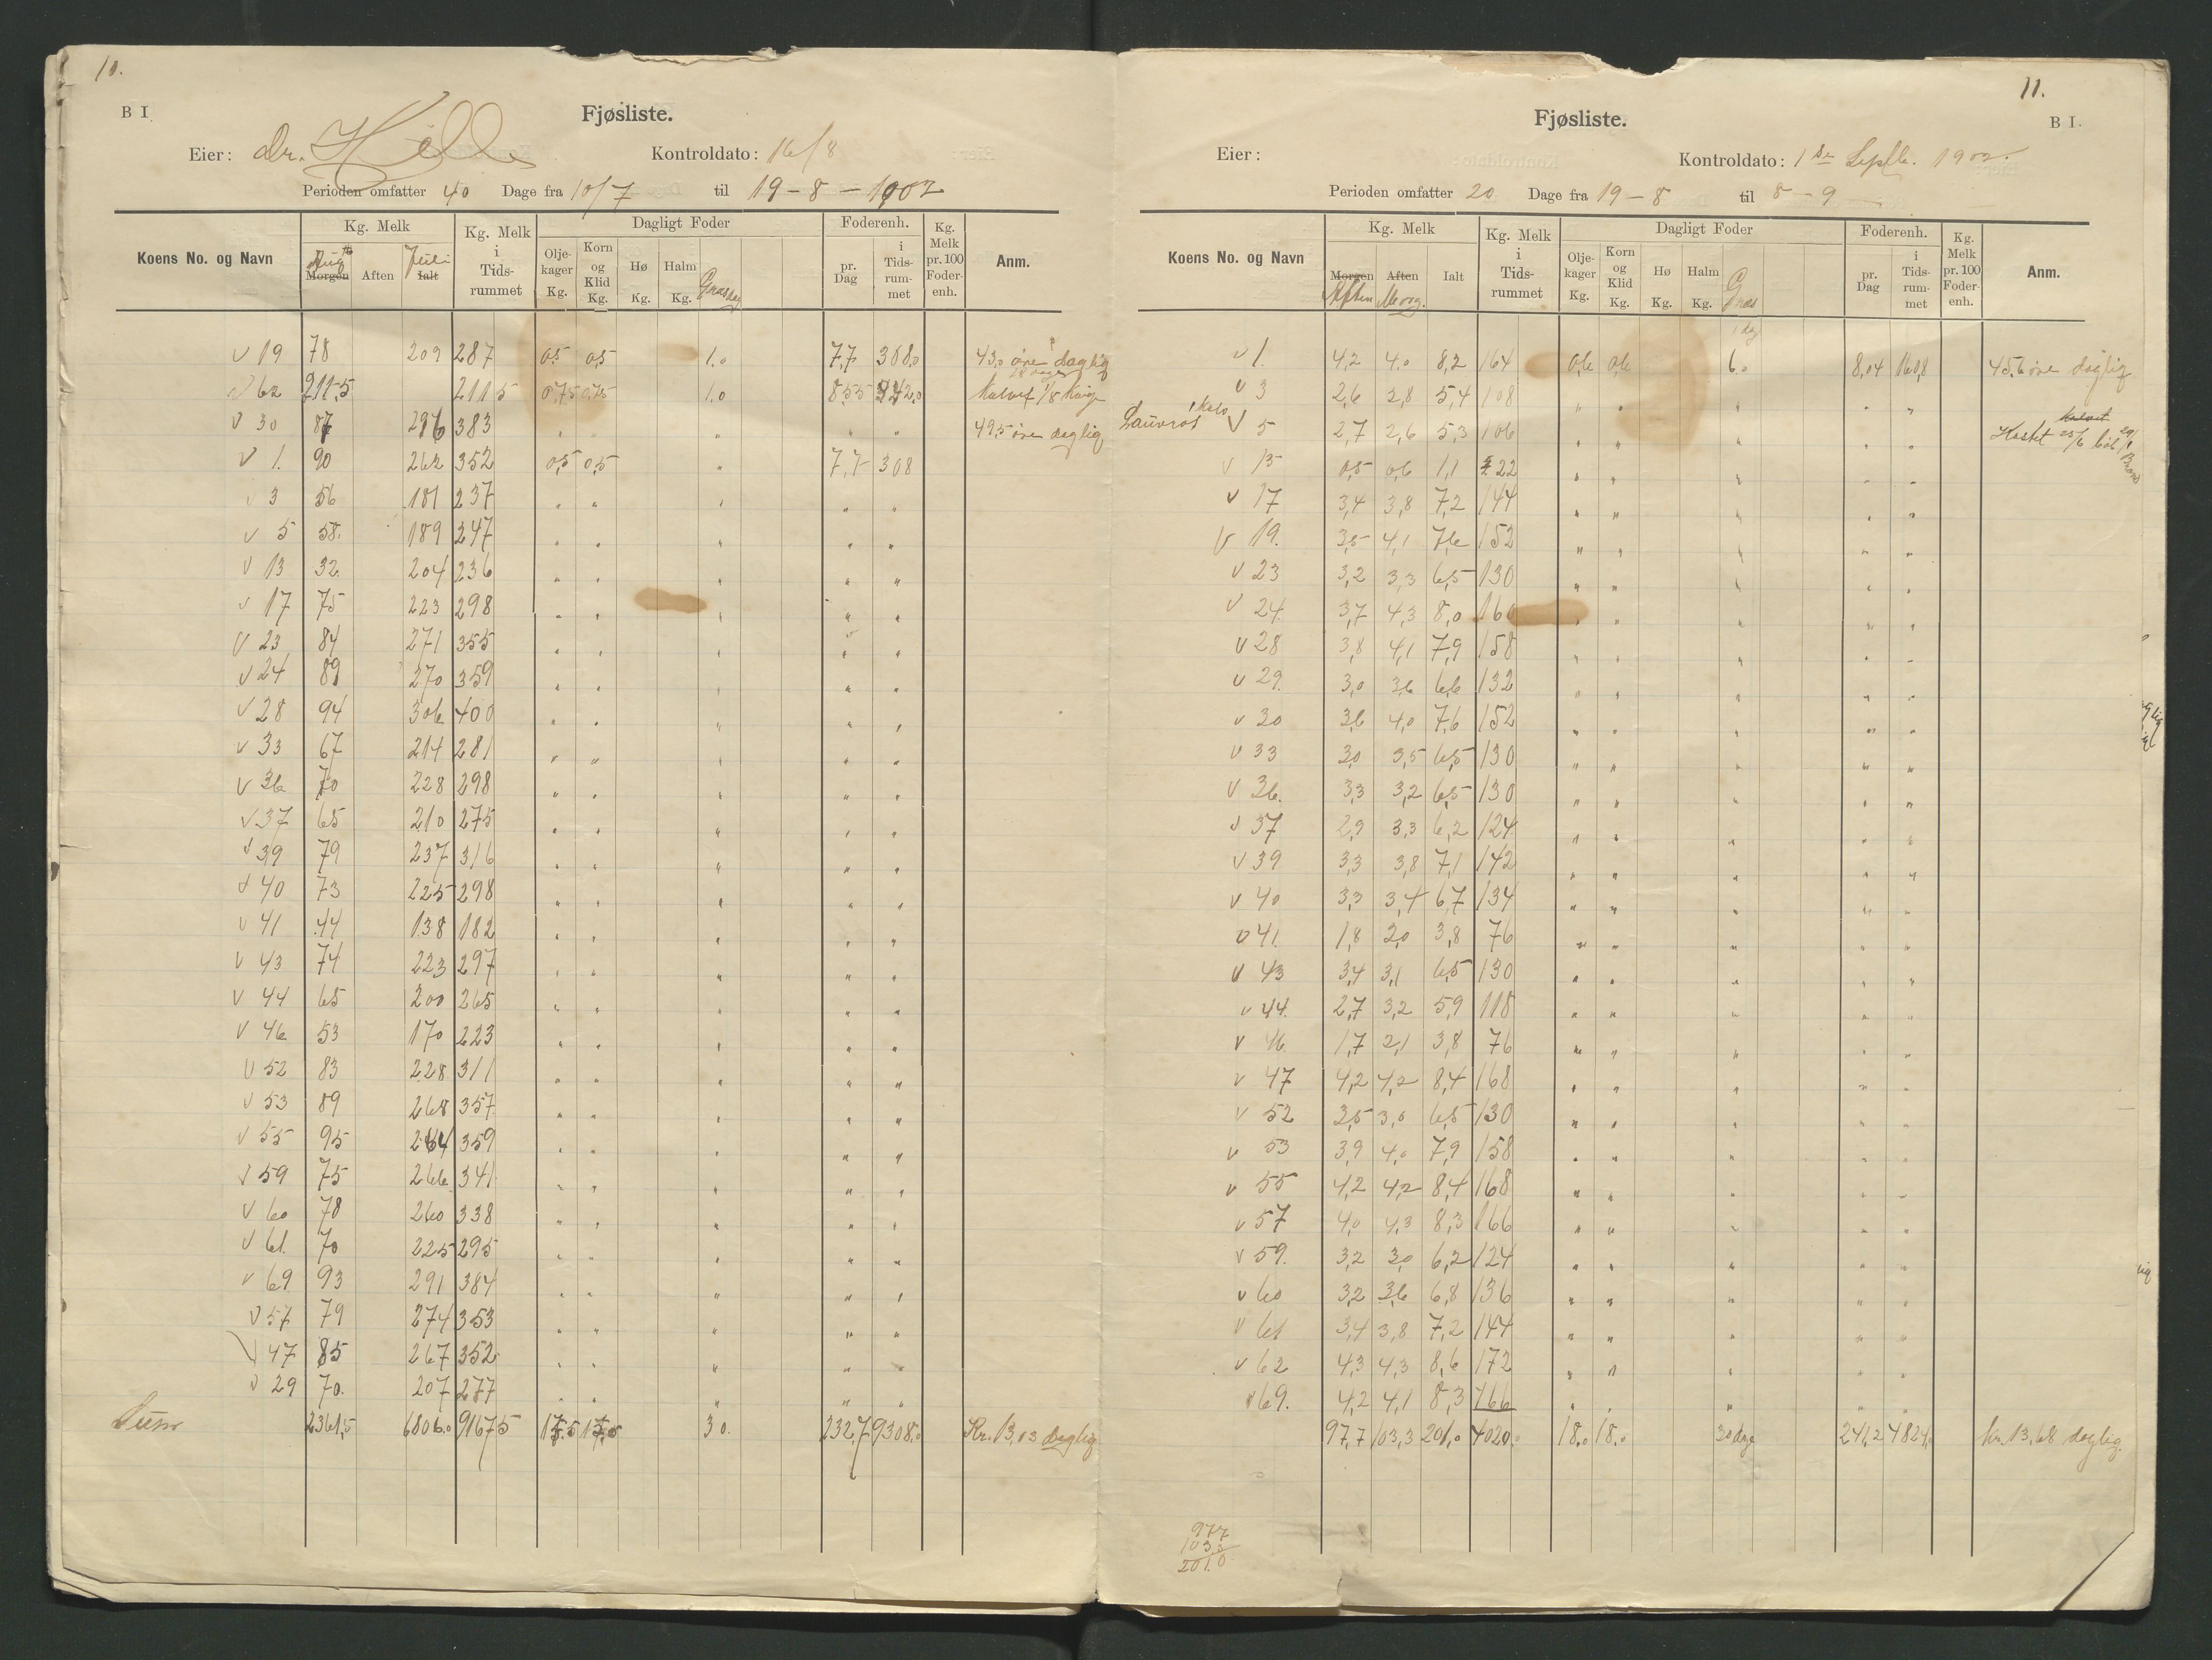 10.
B I.
Fjøsliste.
Eier: Dr. Hille Kontroldato: 16/8
Perioden omfatter 40 Dage fra 10/7 til 19-8-1902
Koens No. og Navn Kg. Melk Kg. Melk i Tidsrummet Dagligt Foder Foderenh. Kg. Melk pr. 100 Foderenh. Anm.
Aug Morgen Aften Juli Ialt Oljekager Kg. Korn og Klid Kg. Hø Kg. Halm Kg. Græsdag pr. Dag i Tidsrummet
v 19 78 209 287 0,5 0,5 1.0 7,7 308,0 43,0 øre daglig
v 62 211,5 211 5 0,75 0,75 1.0 8,55 342,0 Kalvet 1/8 Kvige
v 30 87 296 383 " " " " " 49,5 øre daglig
v 1. 90 262 352 0,5 0,5 " 7,7 308
v 3 56 181 237 " " " " "
v 5 58. 189 247 " " " " "
v 13 32. 204 236 " " " " "
v 17 75 223 298 " " " " "
v 23 84 271 355 " " " " "
v 24 89 270 359 " " " " "
v 28 94 306 400 " " " " "
v 33 67 214 281 " " " " "
v 36 70 228 298 " " " " "
v 37 65 210 275 " " " " "
v 39 79 237 316 " " " " "
v 40 73 225 298 " " " " "
v 41 44 138 182 " " " " "
v 43 74 223 297 " " " " "
v 44 65 200 265 " " " " "
v 46 53 170 223 " " " " "
v 52 83 228 311 " " " " "
v 53 89 268 357 " " " " "
v 55 95 264 359 " " " " "
v 59 75 266 341 " " " " "
v 60 78 260 338 " " " " "
v 61. 70 225 295 " " " " "
v 69 93 291 384 " " " " "
v 57 79 274 353 " " " " "
v 47 85 267 352 " " " " "
v 29 70. 207 277 " " " " "
Sum 2361,5 6806.0 9167 5 15.5 15,5 30. 232,7 9308.0 Kr. 13,03 daglig
11.
B I.
Fjøsliste.
Eier: Kontroldato: 1ste Septb. 1902.
Perioden omfatter 20 Dage fra 19-8 til 8-9
Koens No. og Navn Kg. Melk Kg. Melk i Tidsrummet Dagligt Foder Foderenh. Kg. Melk pr. 100 Foderenh. Anm.
Morgen Aften Aften Morg. Ialt Oljekager Kg. Korn og Klid Kg. Hø Kg. Halm Kg. Græs pr. Dag i Tidsrummet
1 dag
v 1. 4,2 4.0 8,2 164 0,6 0,6 6.0 8,04 160,8 45,6 øre daglig
v 3 2,6 2,8 5,4 108 " " " " "
v 5 2,7 2,6 5,3 106 " " " " " Kastet
v 13 0,5 0,6 1,1 22 " " " " "
v 17 3,4 3,8 7,2 144 " " " " "
v 19. 3,5 4,1 7,6 152 " " " " "
v 23 3,2 3,3 6,5 130 " " " " "
v 24. 3,7 4,3 8,0 160 " " " " "
v 28 3,8 4,1 7,9 158 " " " " "
v 29. 3,0 3,6 6,6 132 " " " " "
v 30 3,6 4,0 7,6 152 " " " " "
v 33 3,0 3,5 6,5 130 " " " " "
v 36. 3,3 3,2 6,5 130 " " " " "
v 37 2,9 3,3 6,2 124 " " " " "
v 39 3,3 3,8 7,1 142 " " " " "
v 40 3,3 3,4 6,7 134 " " " " "
v 41. 1,8 2,0 3,8 76 " " " " "
v 43 3,4 3,1 6,5 130 " " " " "
v 44. 2,7 3,2 5,9 118 " " " " "
v 46. 1,7 2,1 3,8 76 " " " " "
v 47 4,2 4,2 8,4 168 " " " " "
v 52 3,5 3,0 6,5 130 " " " " "
v 53 3,9 4,0 7,9 158 " " " " "
v 55 4,2 4,2 8,4 168 " " " " "
v 57 4,0 4,3 8,3 166 " " " " "
v 59. 3,2 3,0 6,2 124 " " " " "
v 60 3,2 3,6 6,8 136 " " " " "
v 61 3,4 3,8 7,2 144 " " " " "
v 62 4,3 4,3 8,6 172 " " " " "
v 69. 4,2 4,1 8,3 166 " " " " "
97,7 103,3 201,0 4020. 18.0 18.0 30 dage 241,2 4824,0 kr. 13,68 daglig.
97,7
103,3
201.0